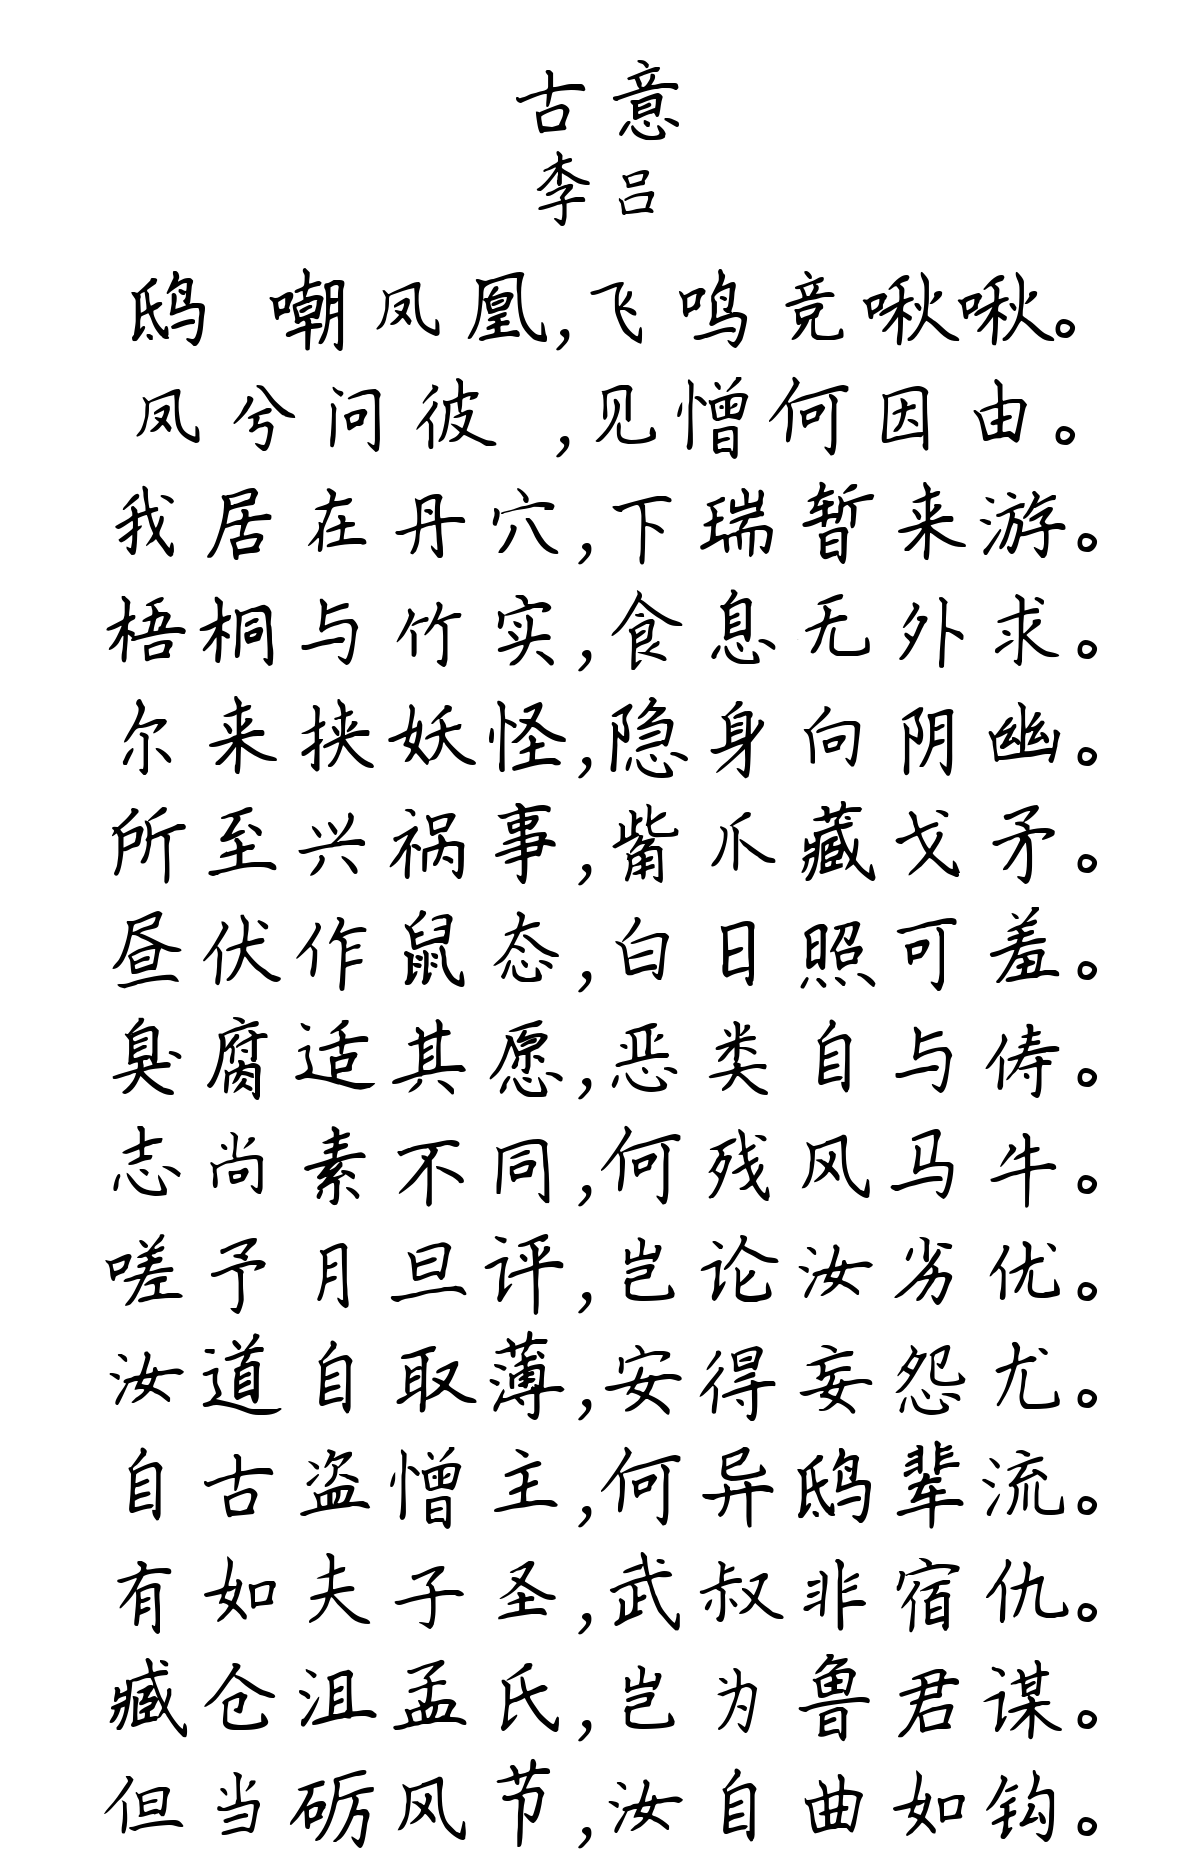 古意
李吕
鸱 嘲凤凰,飞鸣竞啾啾。
凤兮问彼 ,见憎何因由。
我居在丹穴,下瑞暂来游。
梧桐与竹实,食息无外求。
尔来挟妖怪,隐身向阴幽。
所至兴祸事,觜爪藏戈矛。
昼伏作鼠态,白日照可羞。
臭腐适其愿,恶类自与俦。
志尚素不同,何残风马牛。
嗟予月旦评,岂论汝劣优。
汝道自取薄,安得妄怨尤。
自古盗憎主,何异鸱辈流。
有如夫子圣,武叔非宿仇。
臧仓沮孟氏,岂为鲁君谋。
但当砺风节,汝自曲如钩。